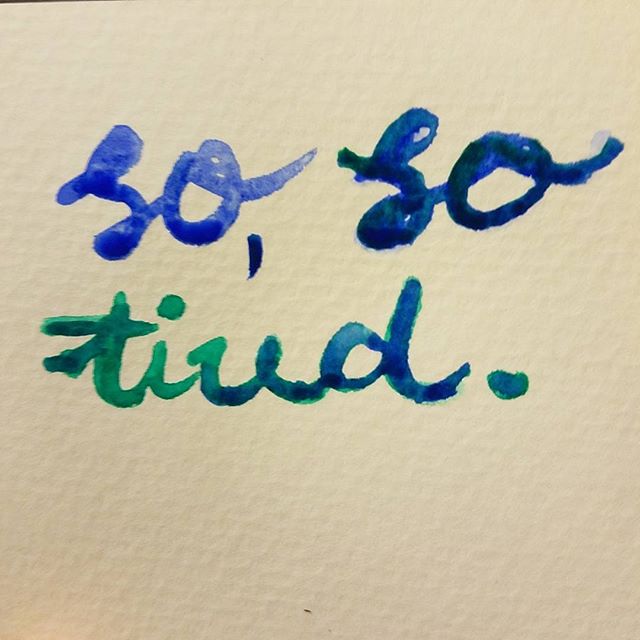 so, so
tired.